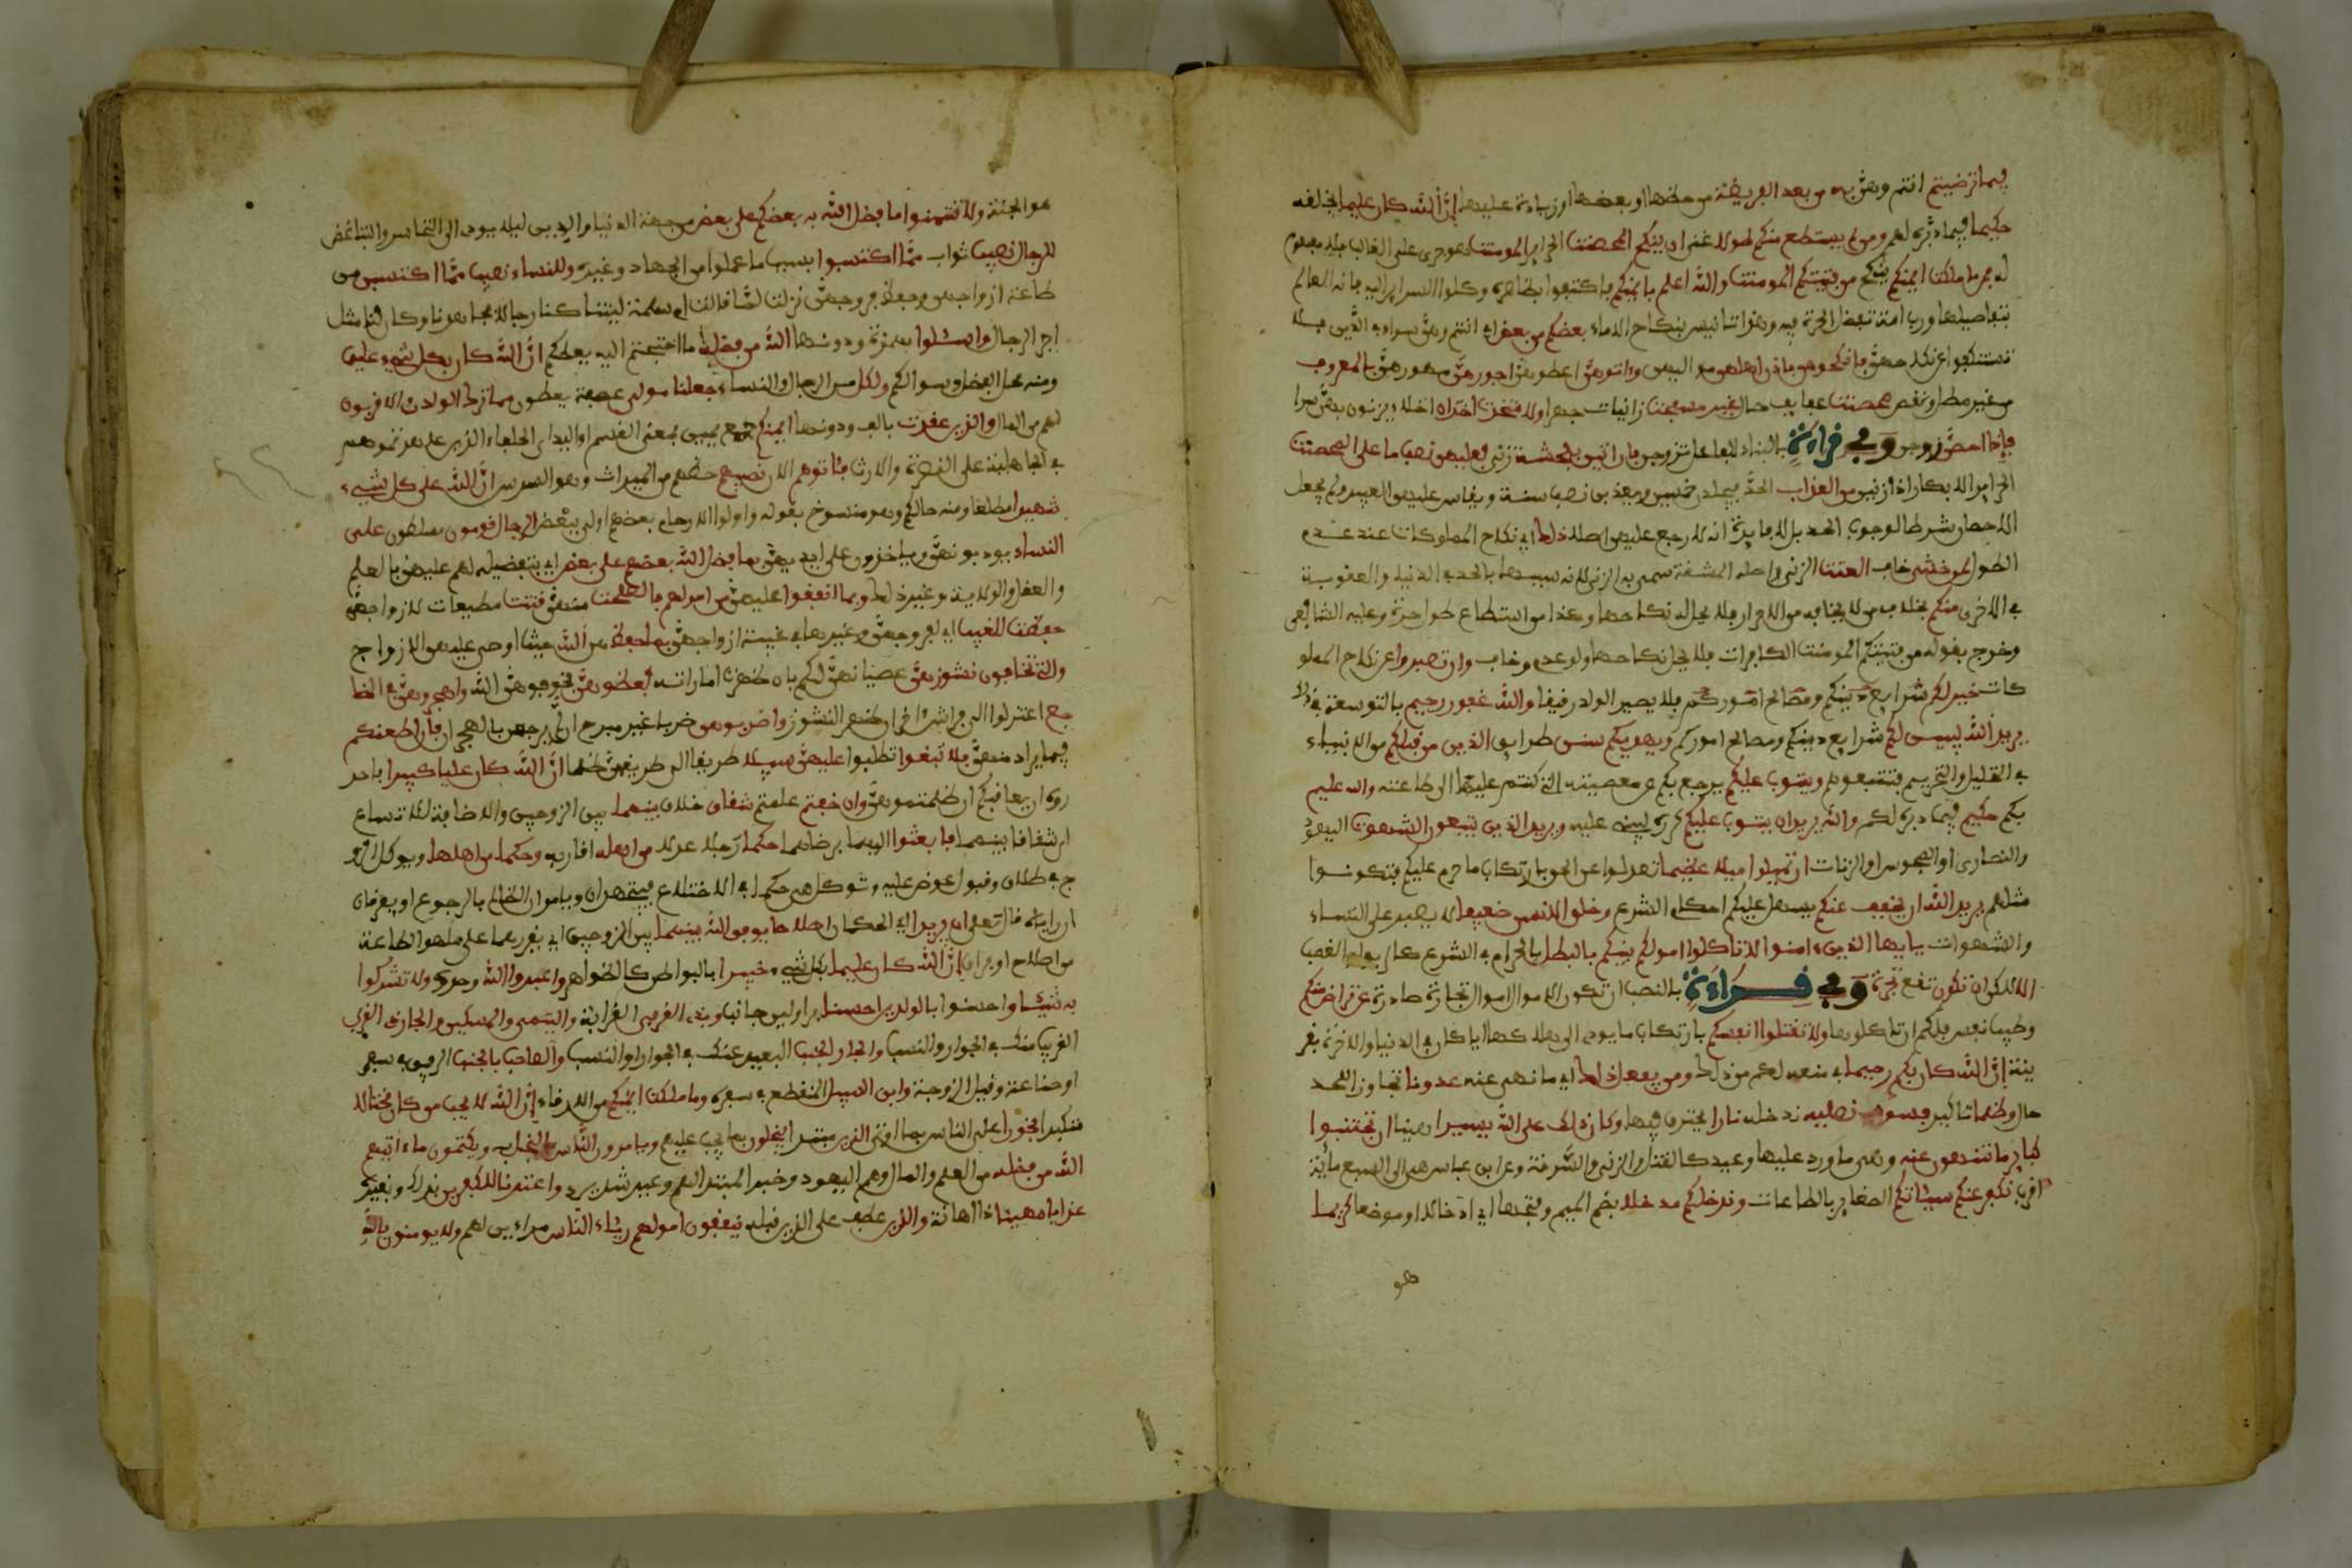 فيما ترضيتم انتم وهن به من بعد الفريضة من حطها او بعضها او زيادة عليها ان الله كان عليما بخلقه
حكيما فيما دبره لهم ومن لم يستطع منكم طولا غنى ان ينكح المحصنت الحراير المومنت هو جرى على الغالب فلا مفهوم
له فمن ما ملكت ايمنكم ينكح من فتيتكم المومنت والله اعلم بايمنكم فاكتفوا بظاهره وكلوا السراير اليه فانه العالم
بتفاصيلها ورب امة تفضل الحرة فيه وهذا تانيس بنكاح الاماء بعضكم من بعض اي انتم وهن سواء في الدين فلا
تستنكفوا عن نكاحهن فانكحوهن باذن اهلهن مواليهن واتوهن اعطوهن اجورهن مهورهن بالمعروف
من غير مطل ونقص محصنت عفايف حال غير مسفحت زانيات جهرا ولا متخذت اخدان اخلاء يزنون بهن سرا
فاذا احصن زوجن وفي قراءة بالبناء للفاعل تزوجن فان اتين بفحشة زنى فعليهن نصف ما على المحصنت
الحراير الابكار اذا زنين من العذاب الحد فيجلدن خمسين ويغربن نصف سنة ويقاس عليهن العبيد ولم يجعل
الاحصان شرطا لوجوب الحد بل لافادة انه لا رجم عليهن اصلا ذلك اي نكاح المملوكات عند عدم
الطول لمن خشي خاف العنت الزنى واصله المشقة سمي به الزنى لانه سببها بالحد في الدنيا والعقوبة
في الاخرى منكم بخلاف من لا يخافه من الاحرار فلا يحل له نكاحها وكذا من استطاع طول حرة وعليه الشافعي
وخرج بقوله من فتيتكم المومنت الكافرات فلا يحل نكاحها ولو عدم وخاف وان تصبروا عن نكاح المملو
كات خير لكم شرايع دينكم ومصالح اموركم فلا يصير الولد رفيقا والله غفور رحيم بالتوسعة في ذلا
يريد الله ليبين لكم شرايع دينكم ومصالح اموركم ويهديكم سنن طرايق الذين من قبلكم من الانبياء
في التحليل والتحريم فتتبعوهم ويتوب عليكم يرجع بكم عن معصيته التي كنتم عليها الى طاعته والله عليم
بكم حكيم فيما دبره لكم والله يريد ان يتوب عليكم كرره ليبنى عليه ويريد الذين يتبعون الشهوت اليهود
والنصارى او المجوس او الزنات ان تميلوا ميلا عظيما تعدلوا عن الحق بارتكاب ما حرم عليكم فتكونوا
مثلهم يريد الله ان يخفف عنكم يسهل عليكم احكام الشرع وخلق الانسن ضعيفا لا يصبر على النساء
والشهوات يايها الذين ءامنوا لا تاكلوا امولكم بينكم بالبطل بالحرام في الشرع كالربا والغصب
الا لكن ان تكون تقع تجرة وفي قراءة بالنصب ان تكون الاموال اموال تجارة صادرة عن تراض منكم
وطيب نفس فلكم ان تاكلوها ولا تقتلوا انفسكم بارتكاب ما يودي الى هلاكها ايا كان في الدنيا والاخرة بقر
ينة ان الله كان بكم رحيما في منعه لكم من ذلك ومن يفعل ذلك اي ما نهي عنه عدونا تجاوزا للحد
حال وظلما تاكيد فسوف نصليه ندخله نارا يحترق فيها وكان ذلك على الله يسيرا هينا ان تجتنبوا
كباير ما تنهون عنه وهي ما ورد عليها وعيد كالقتل والزنى والسرقة وعن ابن عباس هي الى السبع ماية
اقرب نكفر عنكم سيئاتكم الصغاير بالطاعات وندخلكم مدخلا بضم الميم وفتحها اي ادخالا او موضعا كريما
هو
هو الجنة ولا تتمنوا ما فضل الله به بعضكم على بعض من جهة الدنيا والدين ليلا يودي الى التحاسد والتباغض
للرجال نصيب ثواب مما اكتسبوا بسبب ما عملوا من الجهاد وغيره وللنساء نصيب مما اكتسبن من
طاعة ازواجهن وحفظ فروجهن نزلت لما قالت ام سلمة ليتنا كنا رجالا فجاهدنا وكان لنا مثل
اجر الرجال واسئلوا بهمزة ودونها الله من فضله ما احتجتم اليه يعطكم ان الله كان بكل شيء عليما
ومنه محل الفضل وسوالكم ولكل من الرجال والنساء جعلنا مولي عصبة يعطون مما ترك الولدن والاقربون
لهم من المال والذين عقدت بالف ودونها ايمنكم جمع يمين بمعنى القسم او اليد اي الحلفاء الذين عاهدتموهم
في الجاهلية على النصرة والارث فئاتوهم الان نصيبهم حظهم من الميراث وهو السدس ان الله على كل شيء
شهيدا مطلعا ومنه حالكم وهو منسوخ بقوله واولوا الارحام بعضهم اولى ببعض الرجال قومون مسلطون على
النساء يودبونهن وياخذون على ايديهن بما فضل الله بعضهم على بعض اي بتفضيله لهم عليهن بالعلم
والعقل والولاية وغير ذلك وبما انفقوا عليهن من امولهم فالصلحت منهن قنتت مطيعات لازواجهن
حفظت للغيب اي لفروجهن وغيرها في غيبة ازواجهن بما حفظ هن الله حيث اوصى عليهن الازواج
والتي تخافون نشوزهن عصيانهن لكم بان ظهرت اماراته فعظوهن فخوفوهن الله واهجروهن في المضا
جع اعتزلوا الى فراش اخر ان ظهر النشوز واضربوهن ضربا غير مبرح ان لم يرجعن بالهجران فان اطعنكم
فيما يراد منهن فلا تبغوا تطلبوا عليهن سبيلا طريقا الى ضربهن ظلما ان الله كان عليا كبيرا فاحذ
روه ان يعاقبكم ان ظلمتموهن وان خفتم علمتم شقاق خلاف بينهما بين الزوجين والاضافة للاتساع
اي شقاقا بينهما فابعثوا اليهما برضاهما حكما رجلا عدلا من اهله اقاربه وحكما من اهلها ويوكل الزو
ج في طلاق وقبول عوض عليه وتوكل هي حكمها في الاختلاع فيجتهدان ويامران الظالم بالرجوع او يفرقان
ان راياه قال تعلى ان يريدا اي الحكمان اصلاحا يوفق الله بينهما بين الزوجين اي يقدرهما على ما هو الطاعة
من اصلاح او فراق ان الله كان عليما بكل شيء خبيرا بالبواطن كالظواهر واعبدوا الله وحدوه ولا تشركوا
به شيئا واحسنوا بالولدين احسنا برا ولين جانب وبذي القربى القرابة واليتمى والمسكين والجار ذي القربى
القريب منك في الجوار والنسب والجار الجنب البعيد عنك في الجوار او النسب والصاحب بالجنب الرفيق في سفر
او صناعة وقيل الزوجة وابن السبيل المنقطع في سفره وما ملكت ايمنكم من الارقاء ان الله لا يحب من كان مختالا
متكبرا فخورا على الناس بما اوتي الذين مبتدا يبخلون بما يجب عليهم ويامرون الناس بالبخل به ويكتمون ما ءاتيهم
الله من فضله من العلم والمال وهم اليهود وخبر المبتدا لهم وعيد شديد واعتدنا للكفرين بذلك وبغيره
عذابا مهينا ذا اهانة والذين عطف على الذين قبله ينفقون امولهم رئاء الناس مراءين لهم ولا يومنون بالله